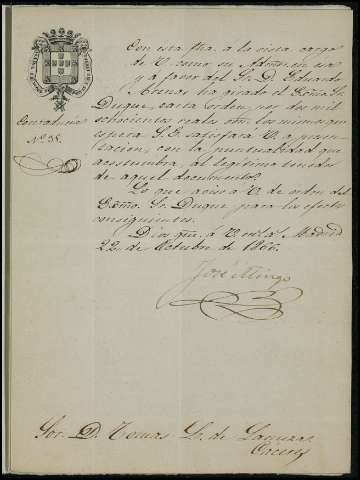 Con esta fha. á la vista cargo
de V. como su Admor. en esa
y á favor del Sr. D. Eduardo
ha girado el Exmo. Sr.
Duque, carta orden, por dos mil
ochocientos reales von. los mismos que
espera S.E. satisfará V. a
con la puntualidad que
acostumbra, al legitimo tenedor
de aquel documento.
Contaduria
Nº 98.
Lo que aviso á V. de orden del
Exmo. Sr. Duque para los efectos
consiguientes.
Dios gue. á V. Madrid
22 de Octubre de 1866.
José Mingo
Sor. D. Tomas L. de